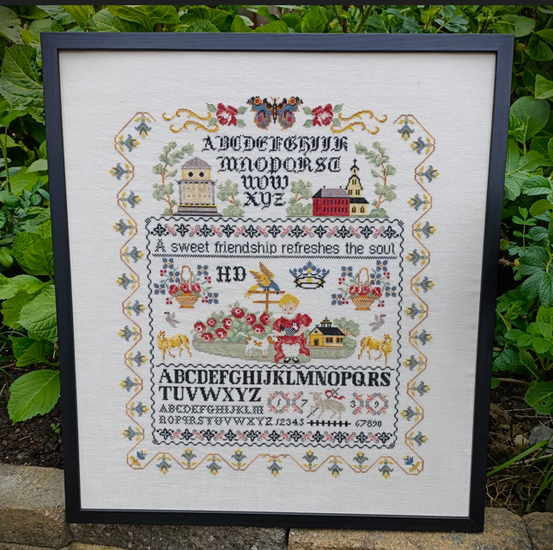 ABCDEFGHIJK
LMNOPQRST
UVW
XYZ
A sweet friendship refreshes the soul
HD
ABCDEFGHIJKLMNOPQRS
TUVWXYZ
ABCDEFGHIJKLM
NOPQRSTUVWXYZ 12345 67890